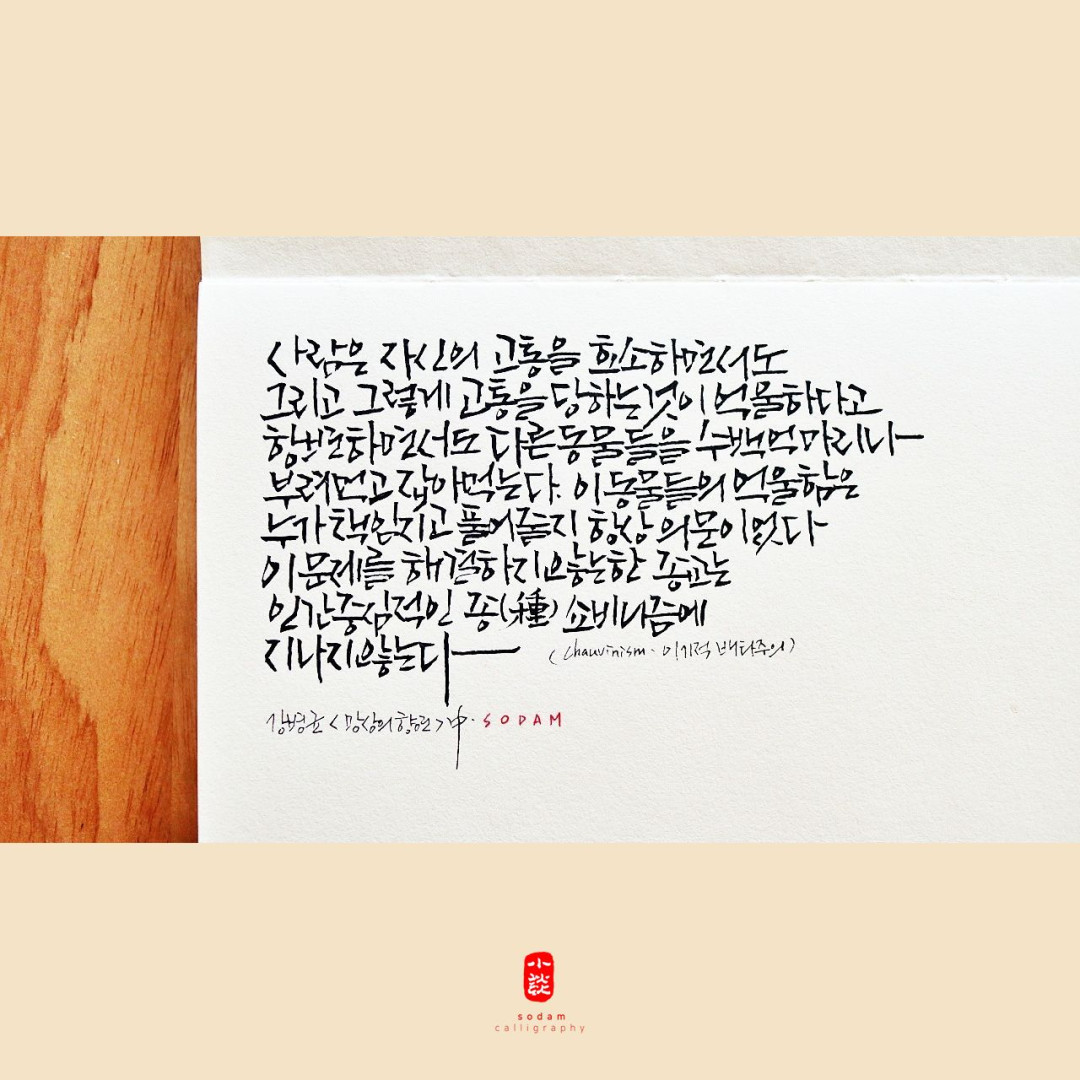 사람은 자신의 고통을 호소하면서도
그리고 그렇게 고통을 당하는것이 억울하다고
항변하면서도 다른 동물들을 수백억마리나
부려먹고 잡아먹는다. 이 동물들의 억울함은
누가 책임지고 풀어줄지 항상 의문이었다
이 문제를 해결하지않는한 종교는
인간중심적인 종(種) 쇼비니즘에
지나지않는다
(chauvinism · 이기적 배타주의)
강병균 <망상의 향연> 中 · SODAM
小談
sodam
calligraphy